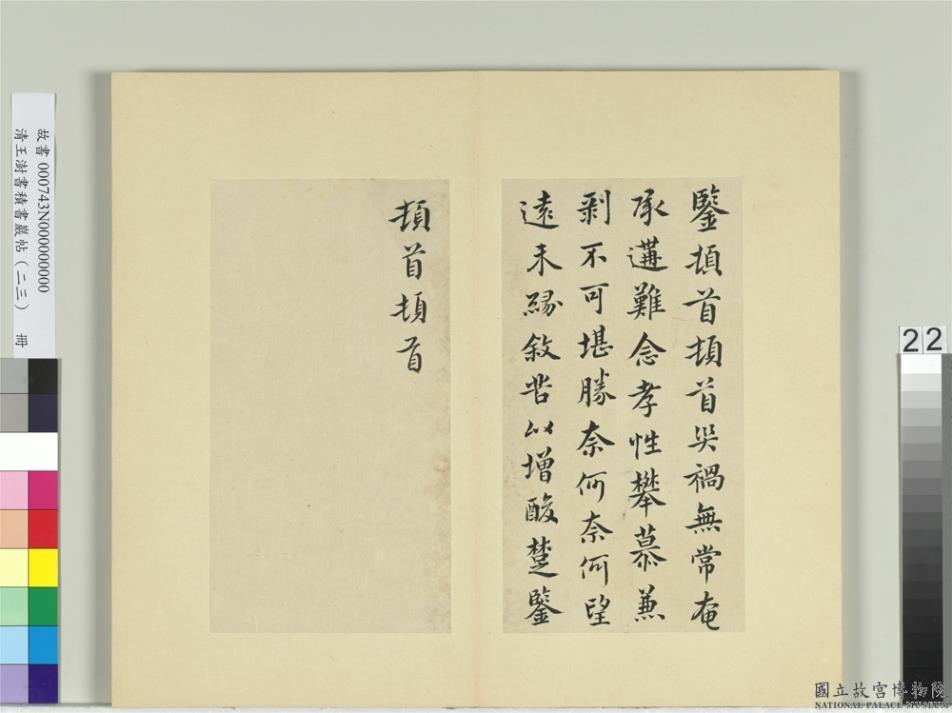 鑒頓首頓首災禍無常奄
承遘難念孝性攀慕兼
剝不可堪勝奈何奈何望
遠未緣敘苦以增酸楚鑒
頓首頓首
故書 000743N000000000
清王澍書積書巖帖（二三） 冊
22
國立故宮博物院
NATIONAL PALACE MUSEUM